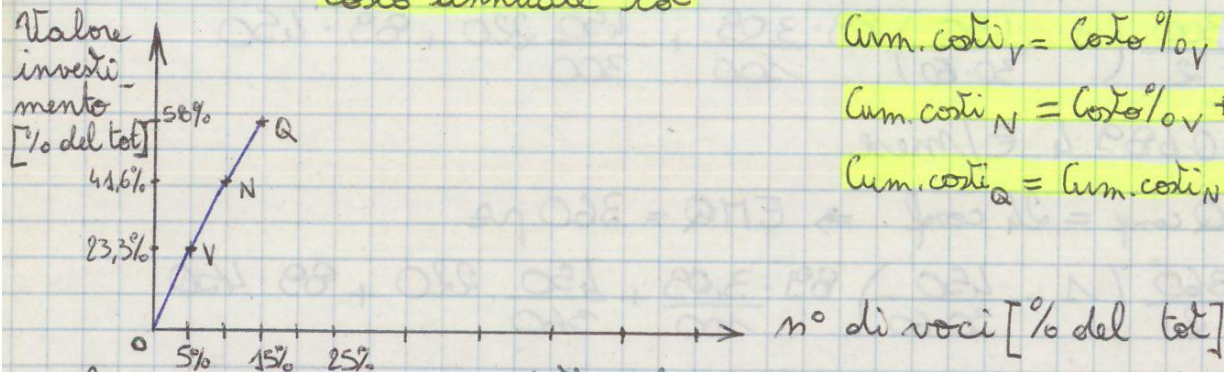 costo annuale tot
Valore
investi_
mento
[% del tot]
58%
41,6%
23,3%
Q
N
V
0
5%
15%
25%
n° di voci [% del tot]
Cum. costi_V = Costo %_V
Cum. costi_N = Costo %_V +
Cum. costi_Q = Cum. costi_N